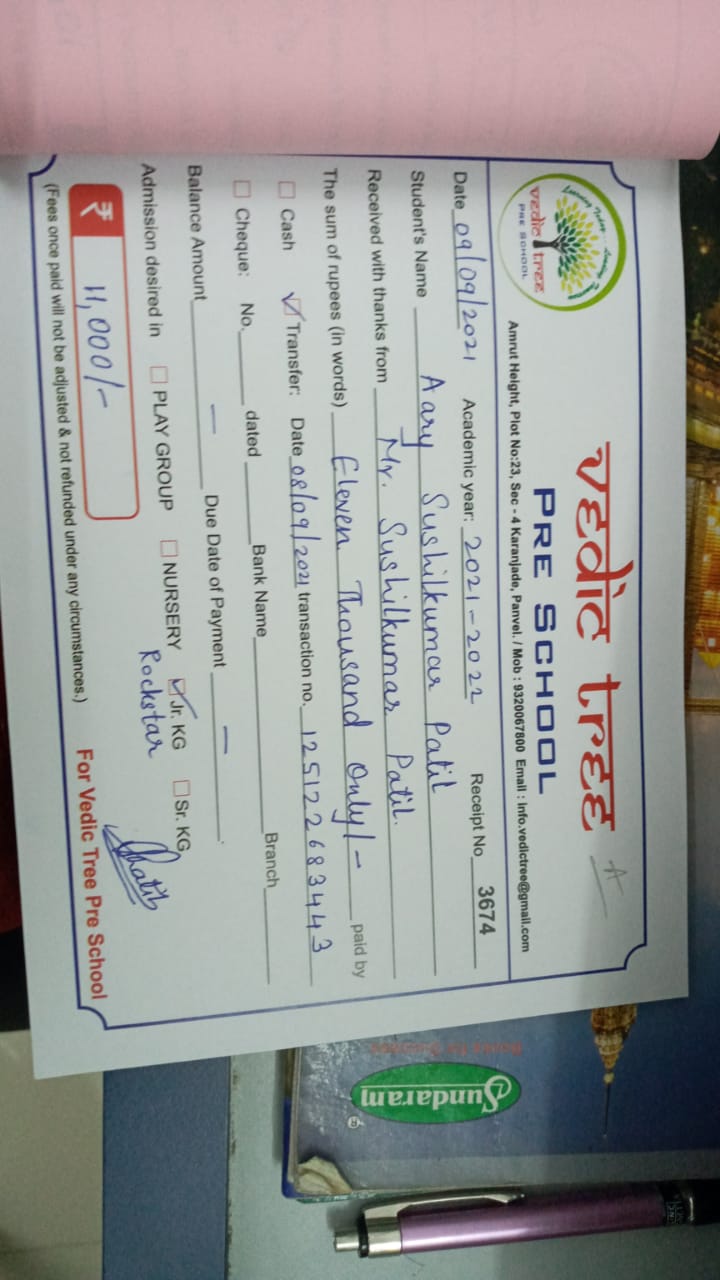 Learning Today...
vedic tree
PRE SCHOOL
vedic tree
PRE SCHOOL
A
Amrut Height, Plot No:23, Sec - 4 Karanjade, Panvel. / Mob : 9320067800 Email : Info.vedictree@gmail.com
Date 09/09/2021 Academic year: 2021-2022 Receipt No 3674
Student's Name Aary Sushilkumar Patil
Received with thanks from Mr. Sushilkumar Patil.
The sum of rupees (in words) Eleven Thousand Only/- paid by
Cash Transfer: Date 08/09/2021 transaction no. 125122683443
Cheque: No. dated Bank Name Branch
Balance Amount — Due Date of Payment — .
Admission desired in PLAY GROUP NURSERY Jr. KG Sr. KG
Rockstar
₹ 11,000/-
(Fees once paid will not be adjusted & not refunded under any circumstances.) For Vedic Tree Pre School
Sundaram